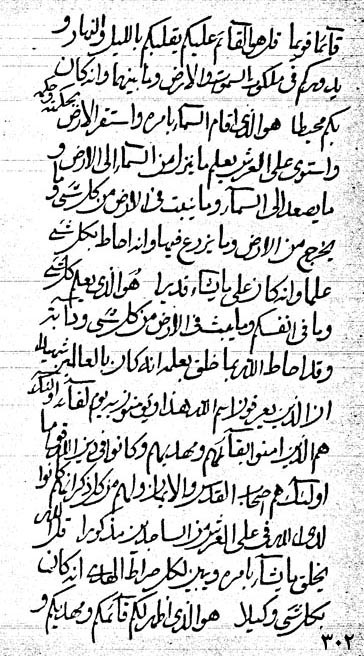 قآئما قويما قل هو القآئم عليكم يقلبكم بالليل والنهار و
يدبركم فى ملكوت السموات والارض وما بينهما وانه كان
بكم محيطا هو الذى اقام السمآء بامره واستقر الارض بحكمه
واستوى على العرش يعلم ما ينزل من السمآء الى الارض و
ما يصعد الى السمآء وما ينبت فى الارض من كل شىء وما
يخرج من الارض وما يزرع فيها وانه احاط بكل شىء
علما وانه كان على ما يشآء قديرا هو الذى يعلم كل شىء
وما فى انفسكم وما يبث فى الارض من كل شىء دآبة
وقد احاط الله بما خلق بعلمه انه كان بالعالمين شهيدا
ان الذين يعرفون اسم الله هذا ويؤمنون به يوم لقآئه اولئك
هم الذين امنوا بقآئمهم ومهديهم وكانوا فى دين الله قوما
اولئك هم اصحاب القدر والايمان ولهم من كل ذكر انهم كانوا
لدى الله فى على العرش من الساجدين مذكورا قل الله
يخلق ما يشآء بامره ويبين لكل صراط القآئم انه كان
بكل شىء وكيلا هو الذى اظهر لكم قآئمكم ومهديكم و
٣٠٢